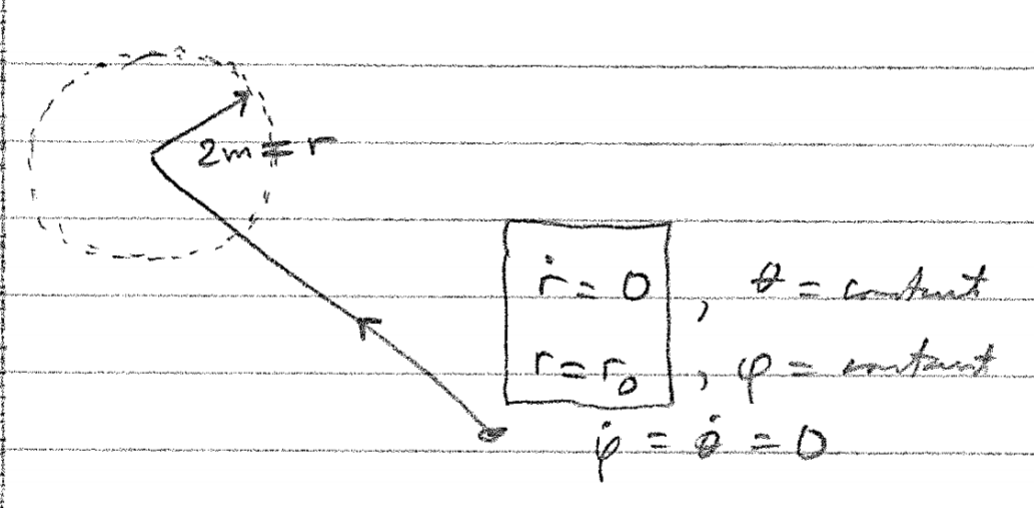 2m = r
ṙ = 0 , θ = constant
r = r₀ , φ = constant
φ̇ = θ̇ = 0